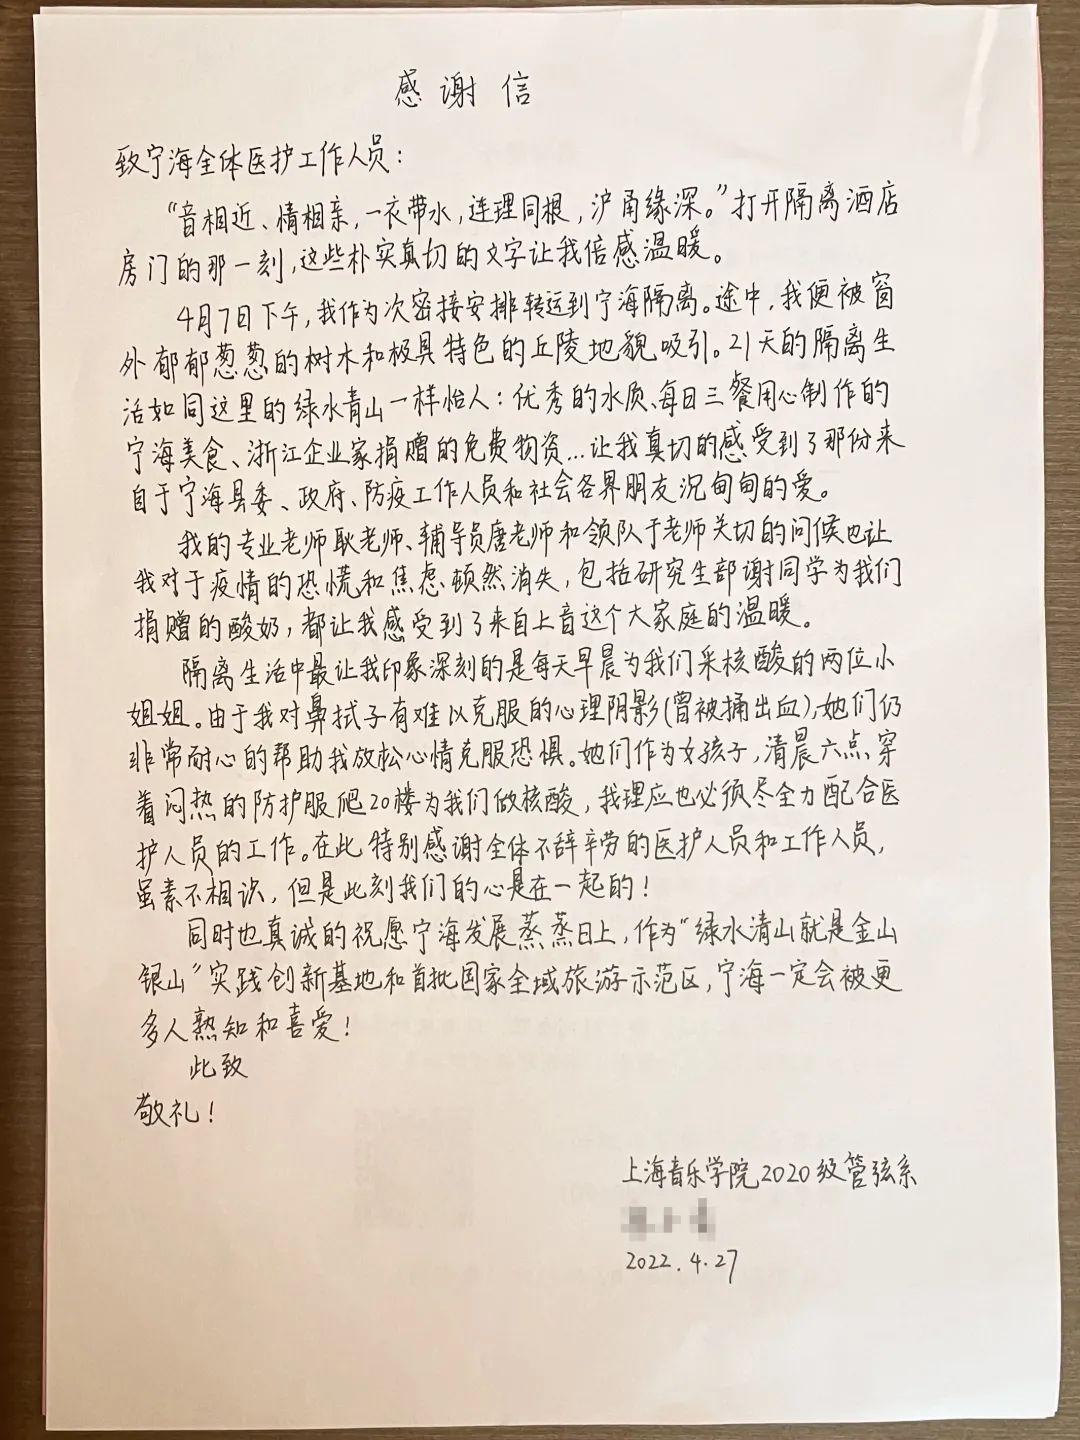 感谢信
致宁海全体医护工作人员：
“音相近、情相亲，一衣带水，连理同根，沪甬缘深。”打开隔离酒店
房门的那一刻，这些朴实真切的文字让我倍感温暖。
4月7日下午，我作为次密接安排转运到宁海隔离。途中，我便被窗
外郁郁葱葱的树木和极具特色的丘陵地貌吸引。21天的隔离生
活如同这里的绿水青山一样怡人：优秀的水质、每日三餐用心制作的
宁海美食、浙江企业家捐赠的免费物资…让我真切的感受到了那份来
自于宁海县委、政府、防疫工作人员和社会各界朋友沉甸甸的爱。
我的专业老师耿老师、辅导员唐老师和领队于老师关切的问候也让
我对于疫情的恐慌和焦虑顿然消失，包括研究生部谢同学为我们
捐赠的酸奶，都让我感受到了来自上音这个大家庭的温暖。
隔离生活中最让我印象深刻的是每天早晨为我们采核酸的两位小
姐姐。由于我对鼻拭子有难以克服的心理阴影(曾被捅出血)，她们仍
非常耐心的帮助我放松心情克服恐惧。她们作为女孩子，清晨六点穿
着闷热的防护服爬20楼为我们做核酸，我理应也必须尽全力配合医
护人员的工作。在此特别感谢全体不辞辛劳的医护人员和工作人员，
虽素不相识，但是此刻我们的心是在一起的！
同时也真诚的祝愿宁海发展蒸蒸日上，作为“绿水清山就是金山
银山”实践创新基地和首批国家全域旅游示范区，宁海一定会被更
多人熟知和喜爱！
此致
敬礼！
上海音乐学院2020级管弦系
2022.4.27